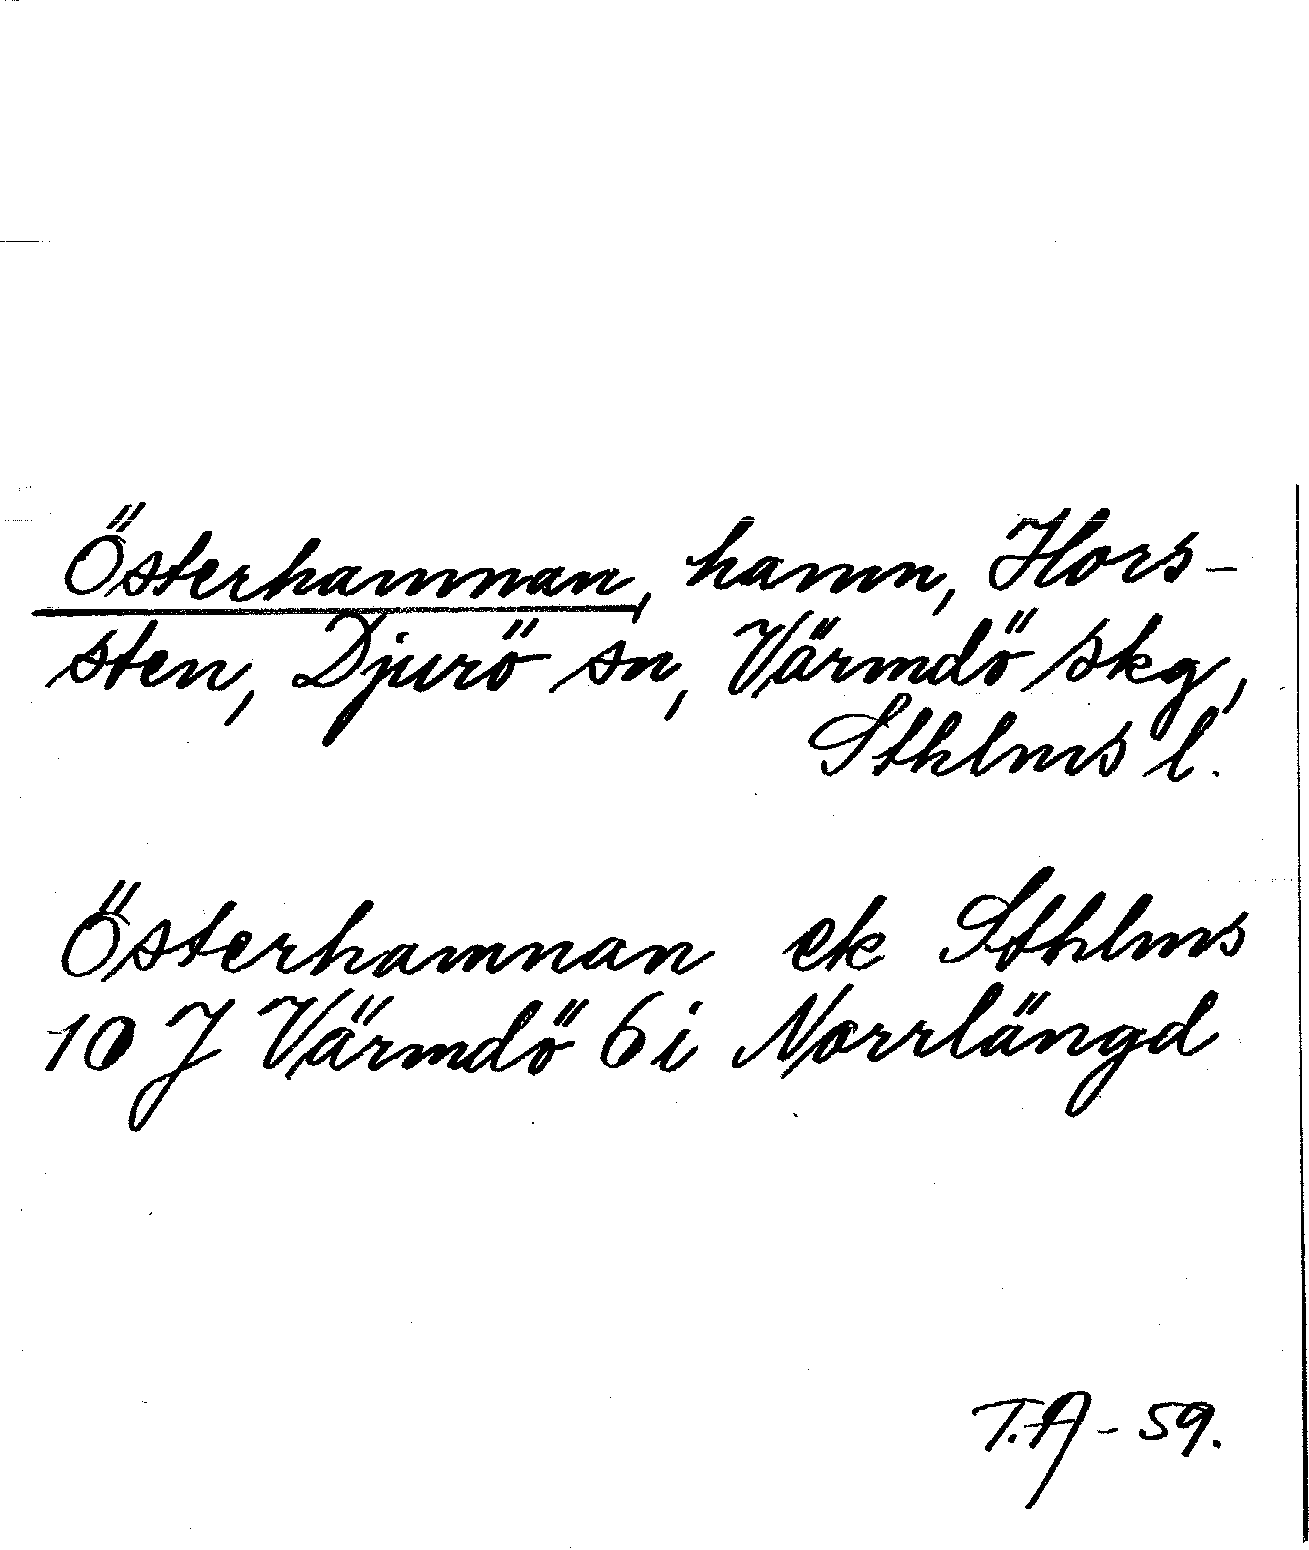 Österhamnan, hamn, Hors-
sten, Djurö sn, Värmdö skg,
Sthlms l.
Österhamnan ek Sthlms
10 J Värmdö 6 i Norrlängd
T.A - 59.